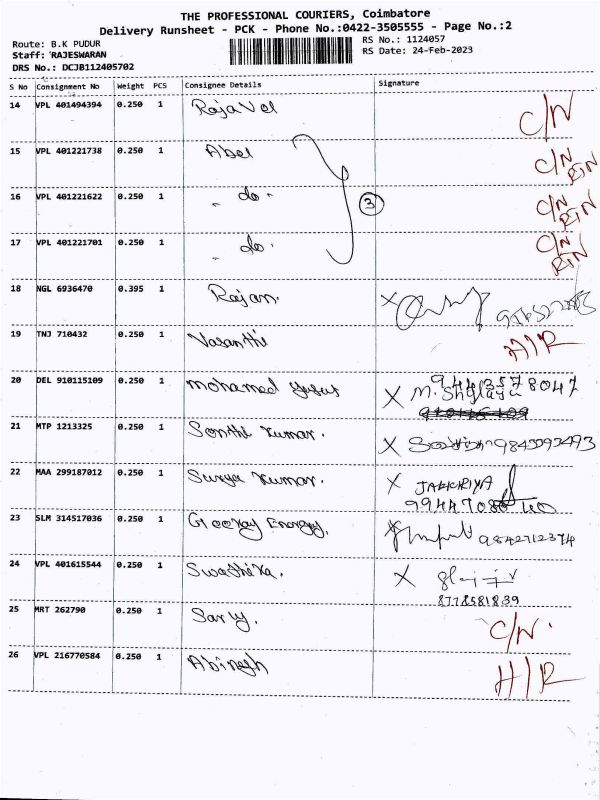 THE PROFESSIONAL COURIERS, Coimbatore
Delivery Runsheet - PCK - Phone No.:0422-3505555 - Page No.:2
Route: B.K PUDUR
RS No.: 1124057
Staff: RAJESWARAN
RS Date: 24-Feb-2023
DRS No.: DCJB112405702
S No Consignment No Weight PCS Consignee Details Signature
14 VPL 401494394 0.250 1 RajaVel C/N
15 VPL 401221738 0.250 1 Abel C/N RTN
16 VPL 401221622 0.250 1 " do " 3 C/N RTN
17 VPL 401221701 0.250 1 " do " C/N RTN
18 NGL 6936470 0.395 1 Rajan. X
19 TNJ 710432 0.250 1 Vasanthi H/R
20 DEL 910115109 0.250 1 mohamed yusuf X M. 94413578047
21 MTP 1213325 0.250 1 Senthil Kumar. X 9845093493
22 MAA 299187012 0.250 1 Surya Kumar. X JAKKRIYA
23 SLM 314517036 0.250 1 Energy. 9842712374
24 VPL 401615544 0.250 1 Swathika. X
8778581839
25 MRT 262790 0.250 1 C/N.
26 VPL 216770584 0.250 1 Abinesh H/R